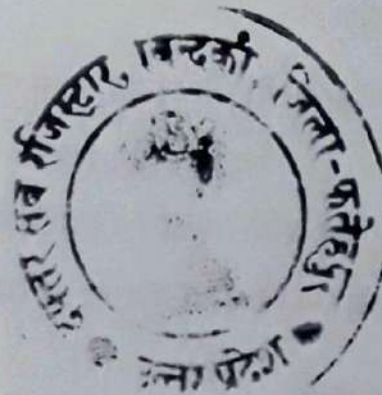 दफ्तर सब रजिस्ट्रार, बिन्दकी, जिला-फतेहपुर
उत्तर प्रदेश